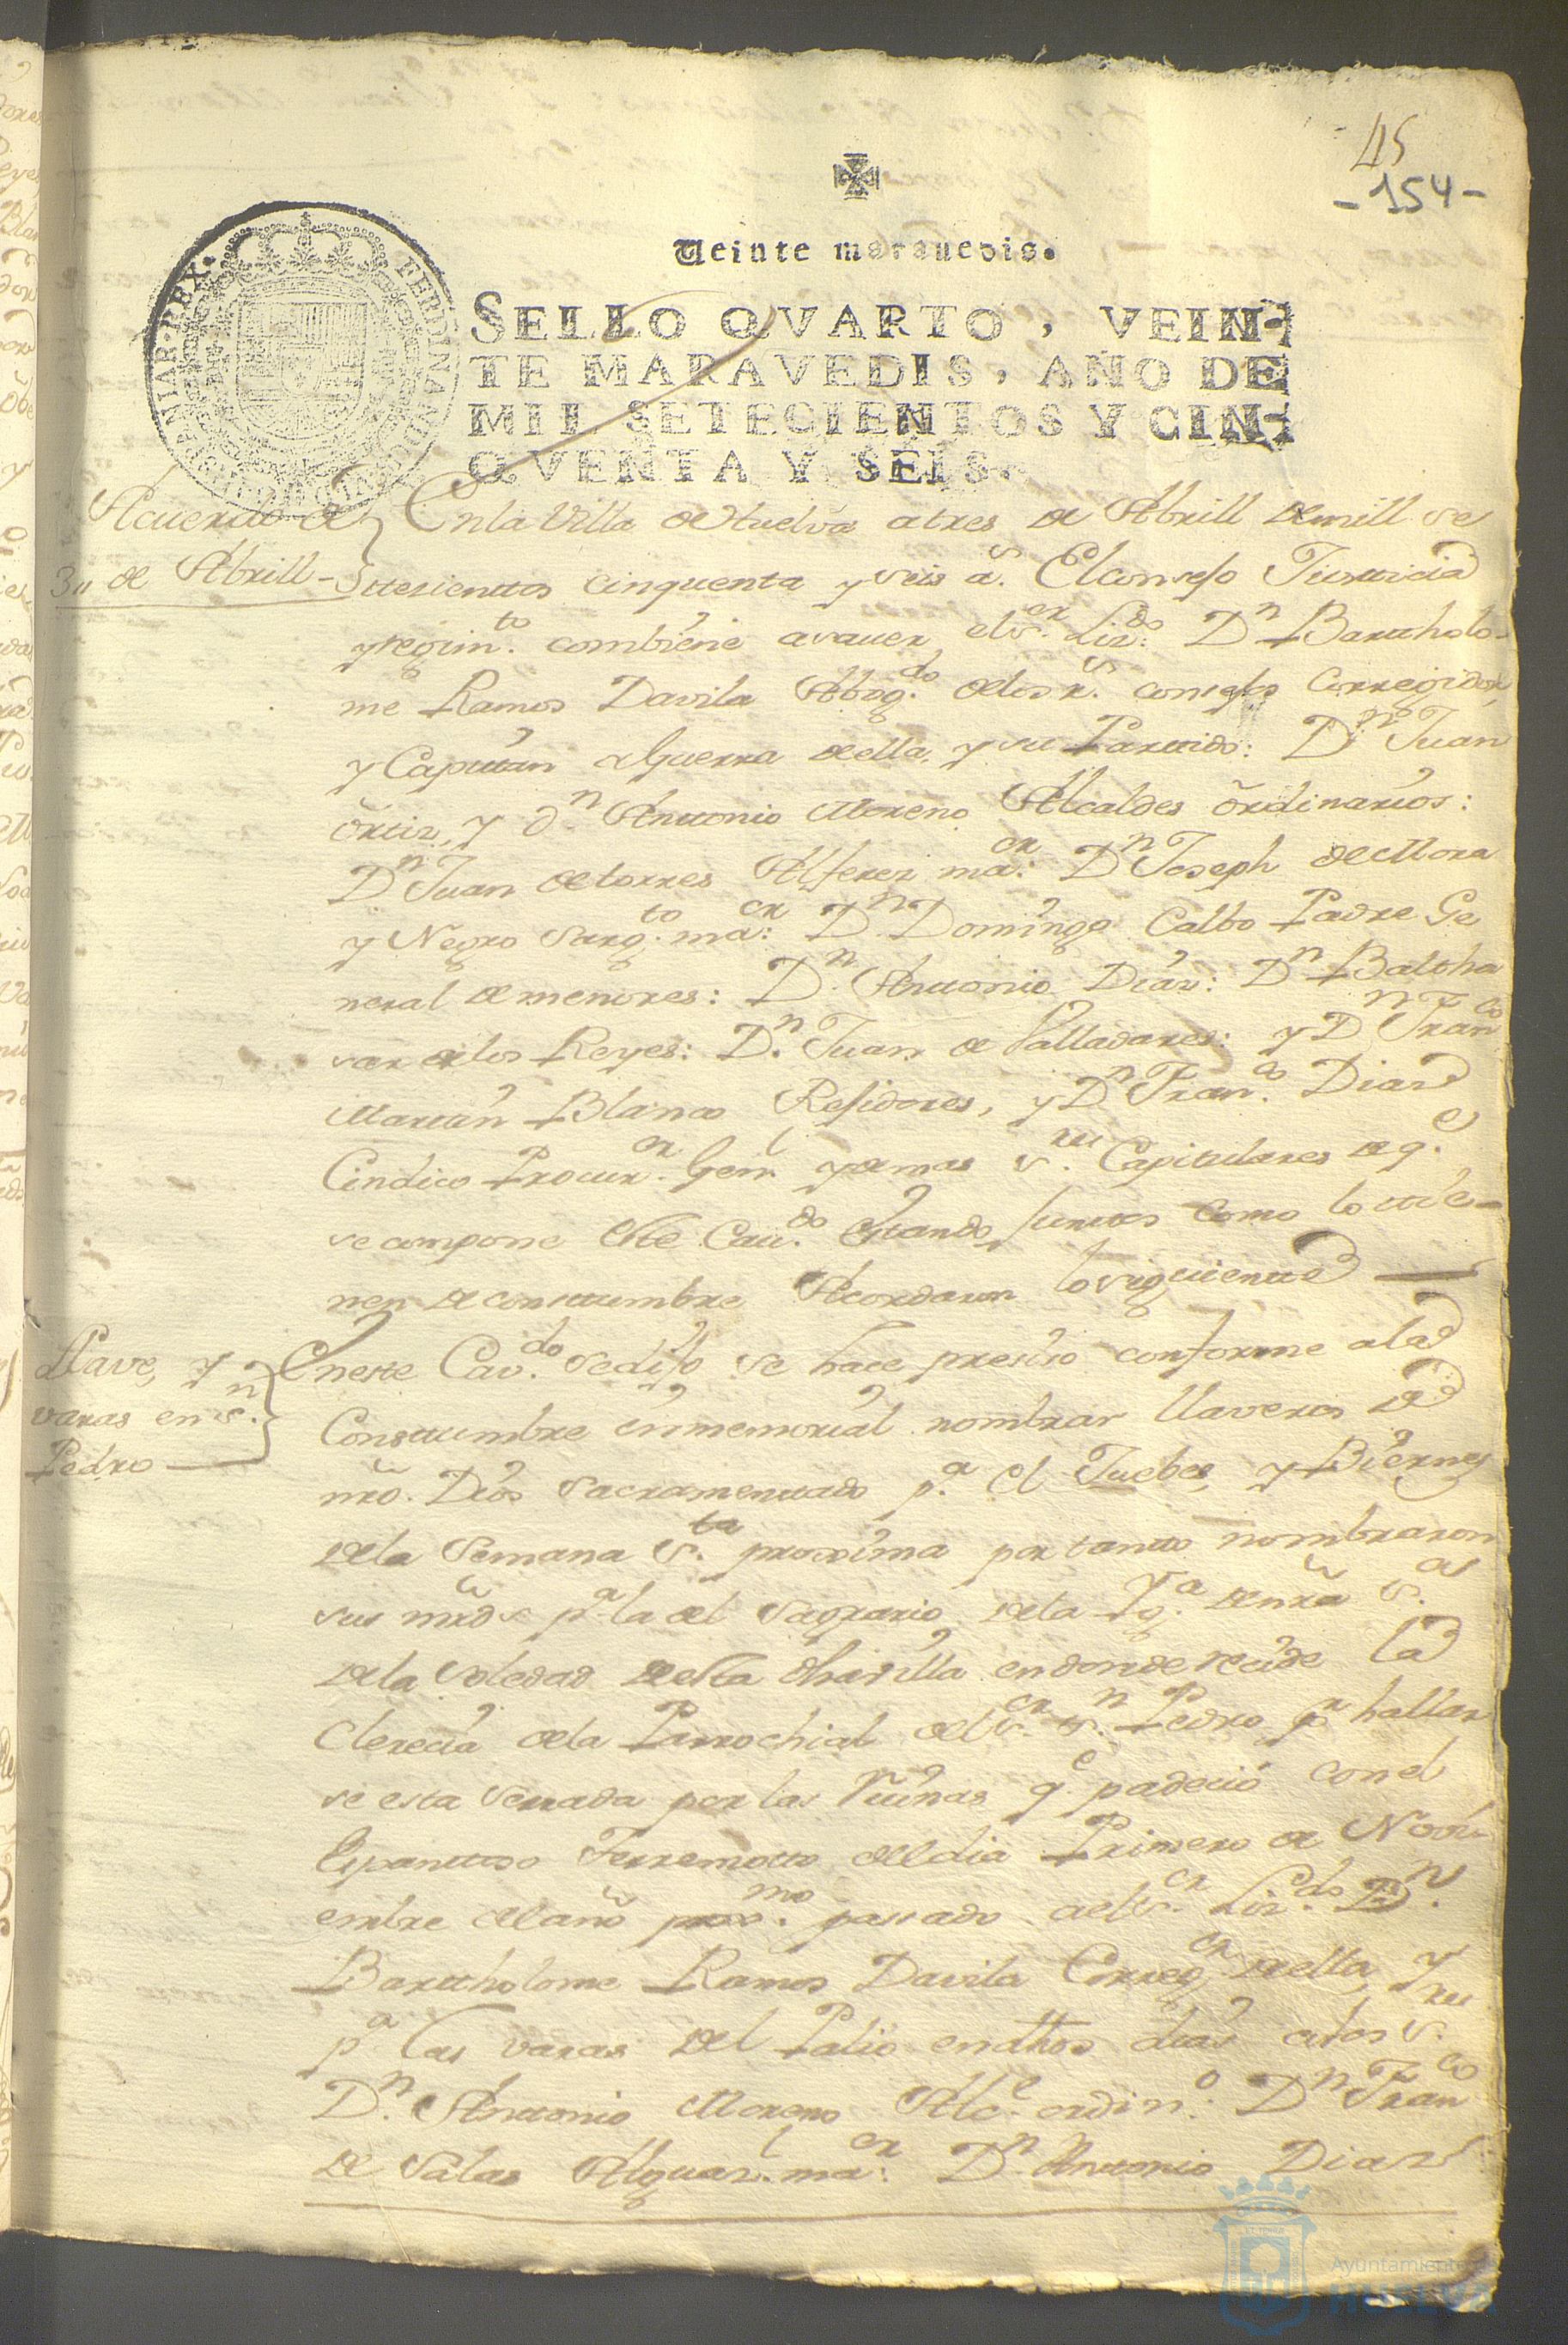 45
-154-
Veinte maravedis.
SELLO QVARTO, VEIN-
TE MARAVEDIS, AÑO DE
MIL SETECIENTOS Y CIN-
QVENTA Y SEIS.
FERDINANDUS HISPANIAR. REX.
Acuerdo de
3,, de Abrill -
En la Villa de Huelva a tres de Abrill de mill se
ttesienttos cinquenta y seis as. El Consejo Justticia
y regimto. combiene a saver el sr. Lizdo. Dn Barttholo-
mé Ramos Davila Abogdo. de los Rs. consejos Corregidor,
y Capittan a Guerra de ella, y su Parttido: Dn Juan
ortiz, y dn Anttonio Moreno Alcaldes ordinarios:
Dn Juan de torres Alferez maor: Dn Joseph de Mora
y Negro Sargto. maor: Dn Domingo Calbo Padre Ge
neral de menores: Dn. Anttonio Diaz: Dn Baltha
sar de los Reyes: Dn. Juan de Valladares: y Dn Franco
Marttin Blanco Rejidores, y Dn Franco. Diaz
Cindico Procuror. Genl. y demas sres. Capitulares de qe.
se compone este Cavdo. estando junttos como lo ttie-
nen de consttumbre Acordaron lo siguientte
Llave, y
varas en sn.
Pedro
En este Cavdo. se dijo se hace presiso conforme a la
Consttumbre inmemorial nombrar llaveros de
nro. Dios Sacramenttado pa. el Juebes, y Biernes
de la Semana Sta. proxima por tantto nombraron
sus mrds pa la del Sagrario de la Iga. de nra Sa
de la Soledad de esta dha villa en donde recide la
Clerecia de la Parrochial del Sr. Sn. Pedro pr hallar
se esta Serrada por las Ruinas qe. padeció con el
Espanttoso Terremotto del dia Primero de Novi-
embre del año proxmo. passado al Sr. Lizdo. Dn.
Barttholome Ramos Davila Corregor de ella, y
pa las varas del Palio en dhos dias a los sres.
Dn. Anttonio Moreno Alce. ordino. Dn Franco
de Salas Alguazl. maor: Dn. Anttonio Diaz
Ayuntamiento de
HUELVA